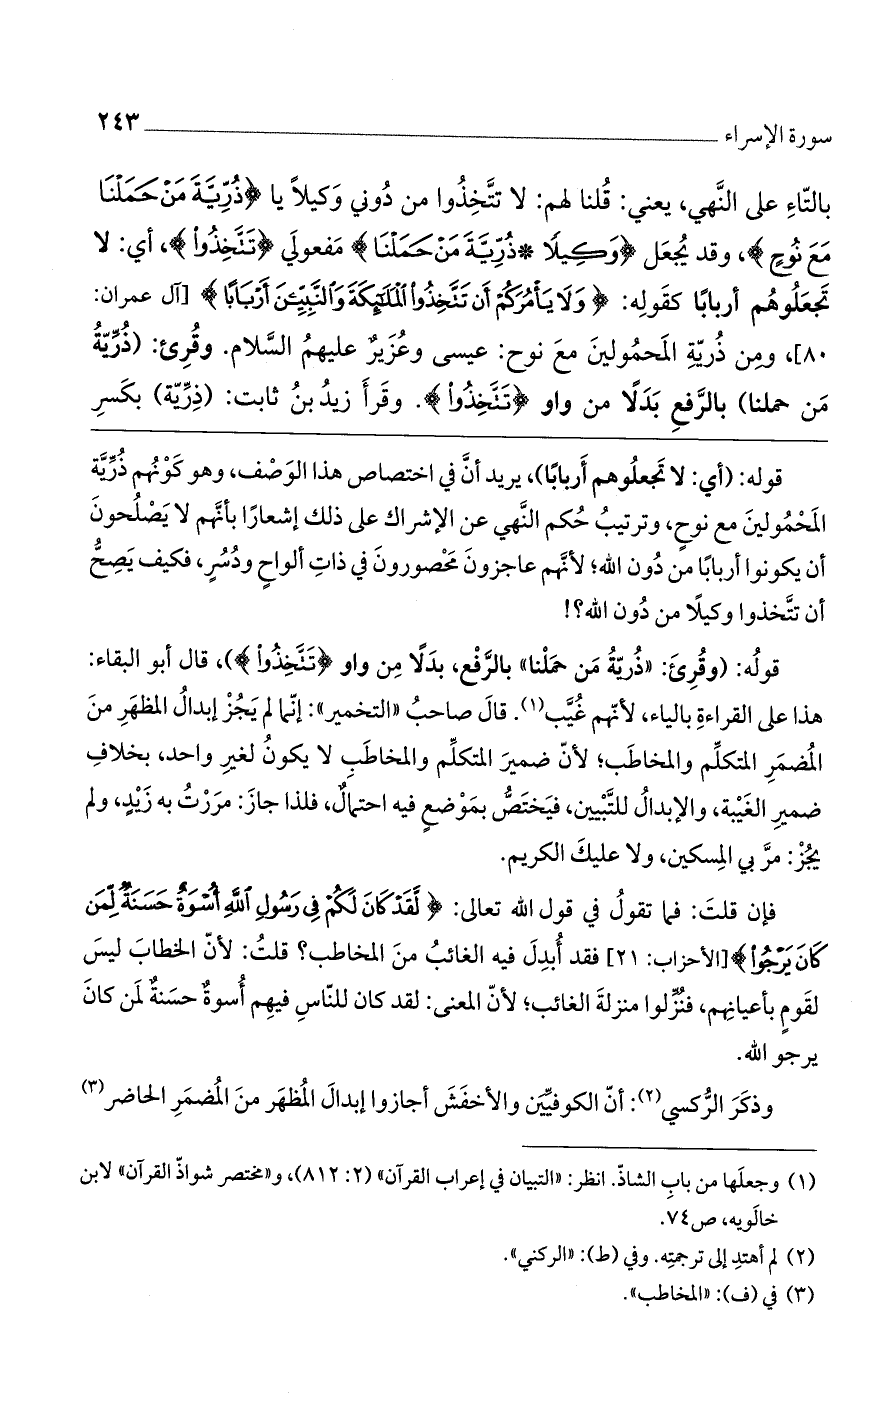 سورة الإسراء ٢٤٣
بالتّاءِ على النَّهي، يعني: قُلنا لهم: لا تتَّخِذُوا من دُوني وَكيلاً يا ﴿ذُرِّيَّةَ مَنْ حَمَلْنَا
مَعَ نُوحٍ﴾، وقد يُجعَل ﴿وَكِيلًا * ذُرِّيَّةَ مَنْ حَمَلْنَا﴾ مَفعولَي ﴿تَتَّخِذُوا﴾، أي: لا
تَجعَلُوهُم أربابًا كقَولِه: ﴿وَلَا يَأْمُرَكُمْ أَن تَتَّخِذُوا الْمَلَائِكَةَ وَالنَّبِيِّينَ أَرْبَابًا﴾ [آل عمران:
٨٠]، ومِن ذُريّةِ المَحمُولينَ معَ نوح: عيسى وعُزَيرٌ عليهمُ السَّلام. وقُرِئ: (ذُرِّيّةُ
مَن حملنا) بالرَّفعِ بَدَلًا من واو ﴿تَتَّخِذُوا﴾. وقَرأَ زيدُ بنُ ثابت: (ذِرِّيّة) بكَسرِ
قوله: (أي: لا تَجعلُوهم أَربابًا)، يريد أنَّ في اختصاص هذا الوَصْف، وهو كَوْنُهم ذُرِّيَّة
المَحْمُولينَ مع نوحٍ، وترتيبُ حُكم النَّهي عن الإشراك على ذلك إشعارًا بأنَّهم لا يَصْلُحونَ
أن يكونوا أربابًا من دُون الله؛ لأنَّهم عاجزونَ مَحْصورونَ في ذاتِ ألواحٍ ودُسُرٍ، فكيف يَصِحُّ
أن تتَّخذوا وكيلًا من دُون الله؟!
قولُه: (وقُرِئَ: «ذُريّةُ مَن حمَلْنا» بالرَّفْع، بدَلًا مِن واو ﴿تَتَّخِذُوا﴾)، قال أبو البقاء:
هذا على القراءةِ بالياء، لأنّهم غُيَّب(١). قالَ صاحبُ «التخمير»: إنّما لم يَجُزْ إبدالُ المظهَرِ منَ
المُضمَرِ المتكلِّم والمخاطَب؛ لأنّ ضميرَ المتكلِّم والمخاطَبِ لا يكونُ لغيرِ واحد، بخلافِ
ضميرِ الغَيْبة، والإبدالُ للتَّبْيين، فيَختَصُّ بمَوْضعٍ فيه احتمالٌ، فلذا جازَ: مرَرْتُ به زَيْدٍ، ولم
يَجُزْ: مرَّ بي المِسكين، ولا عليكَ الكريم.
فإن قلتَ: فما تقولُ في قول الله تعالى: ﴿لَّقَدْ كَانَ لَكُمْ فِي رَسُولِ اللَّهِ أُسْوَةٌ حَسَنَةٌ لِّمَن
كَانَ يَرْجُوا﴾ [الأحزاب: ٢١] فقد أُبدِلَ فيه الغائبُ منَ المخاطب؟ قلتُ: لأنّ الخطابَ ليسَ
لقَومٍ بأعيانِهم، فنُزِّلوا منزلةَ الغائب؛ لأنّ المعنى: لقد كان للنّاسِ فيهِم أُسوةٌ حسَنةٌ لمَن كانَ
يرجو الله.
وذكَرَ الرُّكسي(٢): أنّ الكوفيِّينَ والأخفَشَ أجازوا إبدالَ المُظهَر منَ المُضمَرِ الحاضر(٣)
(١) وجعلَها من بابِ الشاذّ. انظر: «التبيان في إعراب القرآن» (٢: ٨١٢)، و«مختصر شواذّ القرآن» لابن
خالَويه، ص٧٤.
(٢) لم أهتدِ إلى ترجمتِه. وفي (ط): «الركني».
(٣) في (ف): «المخاطب».